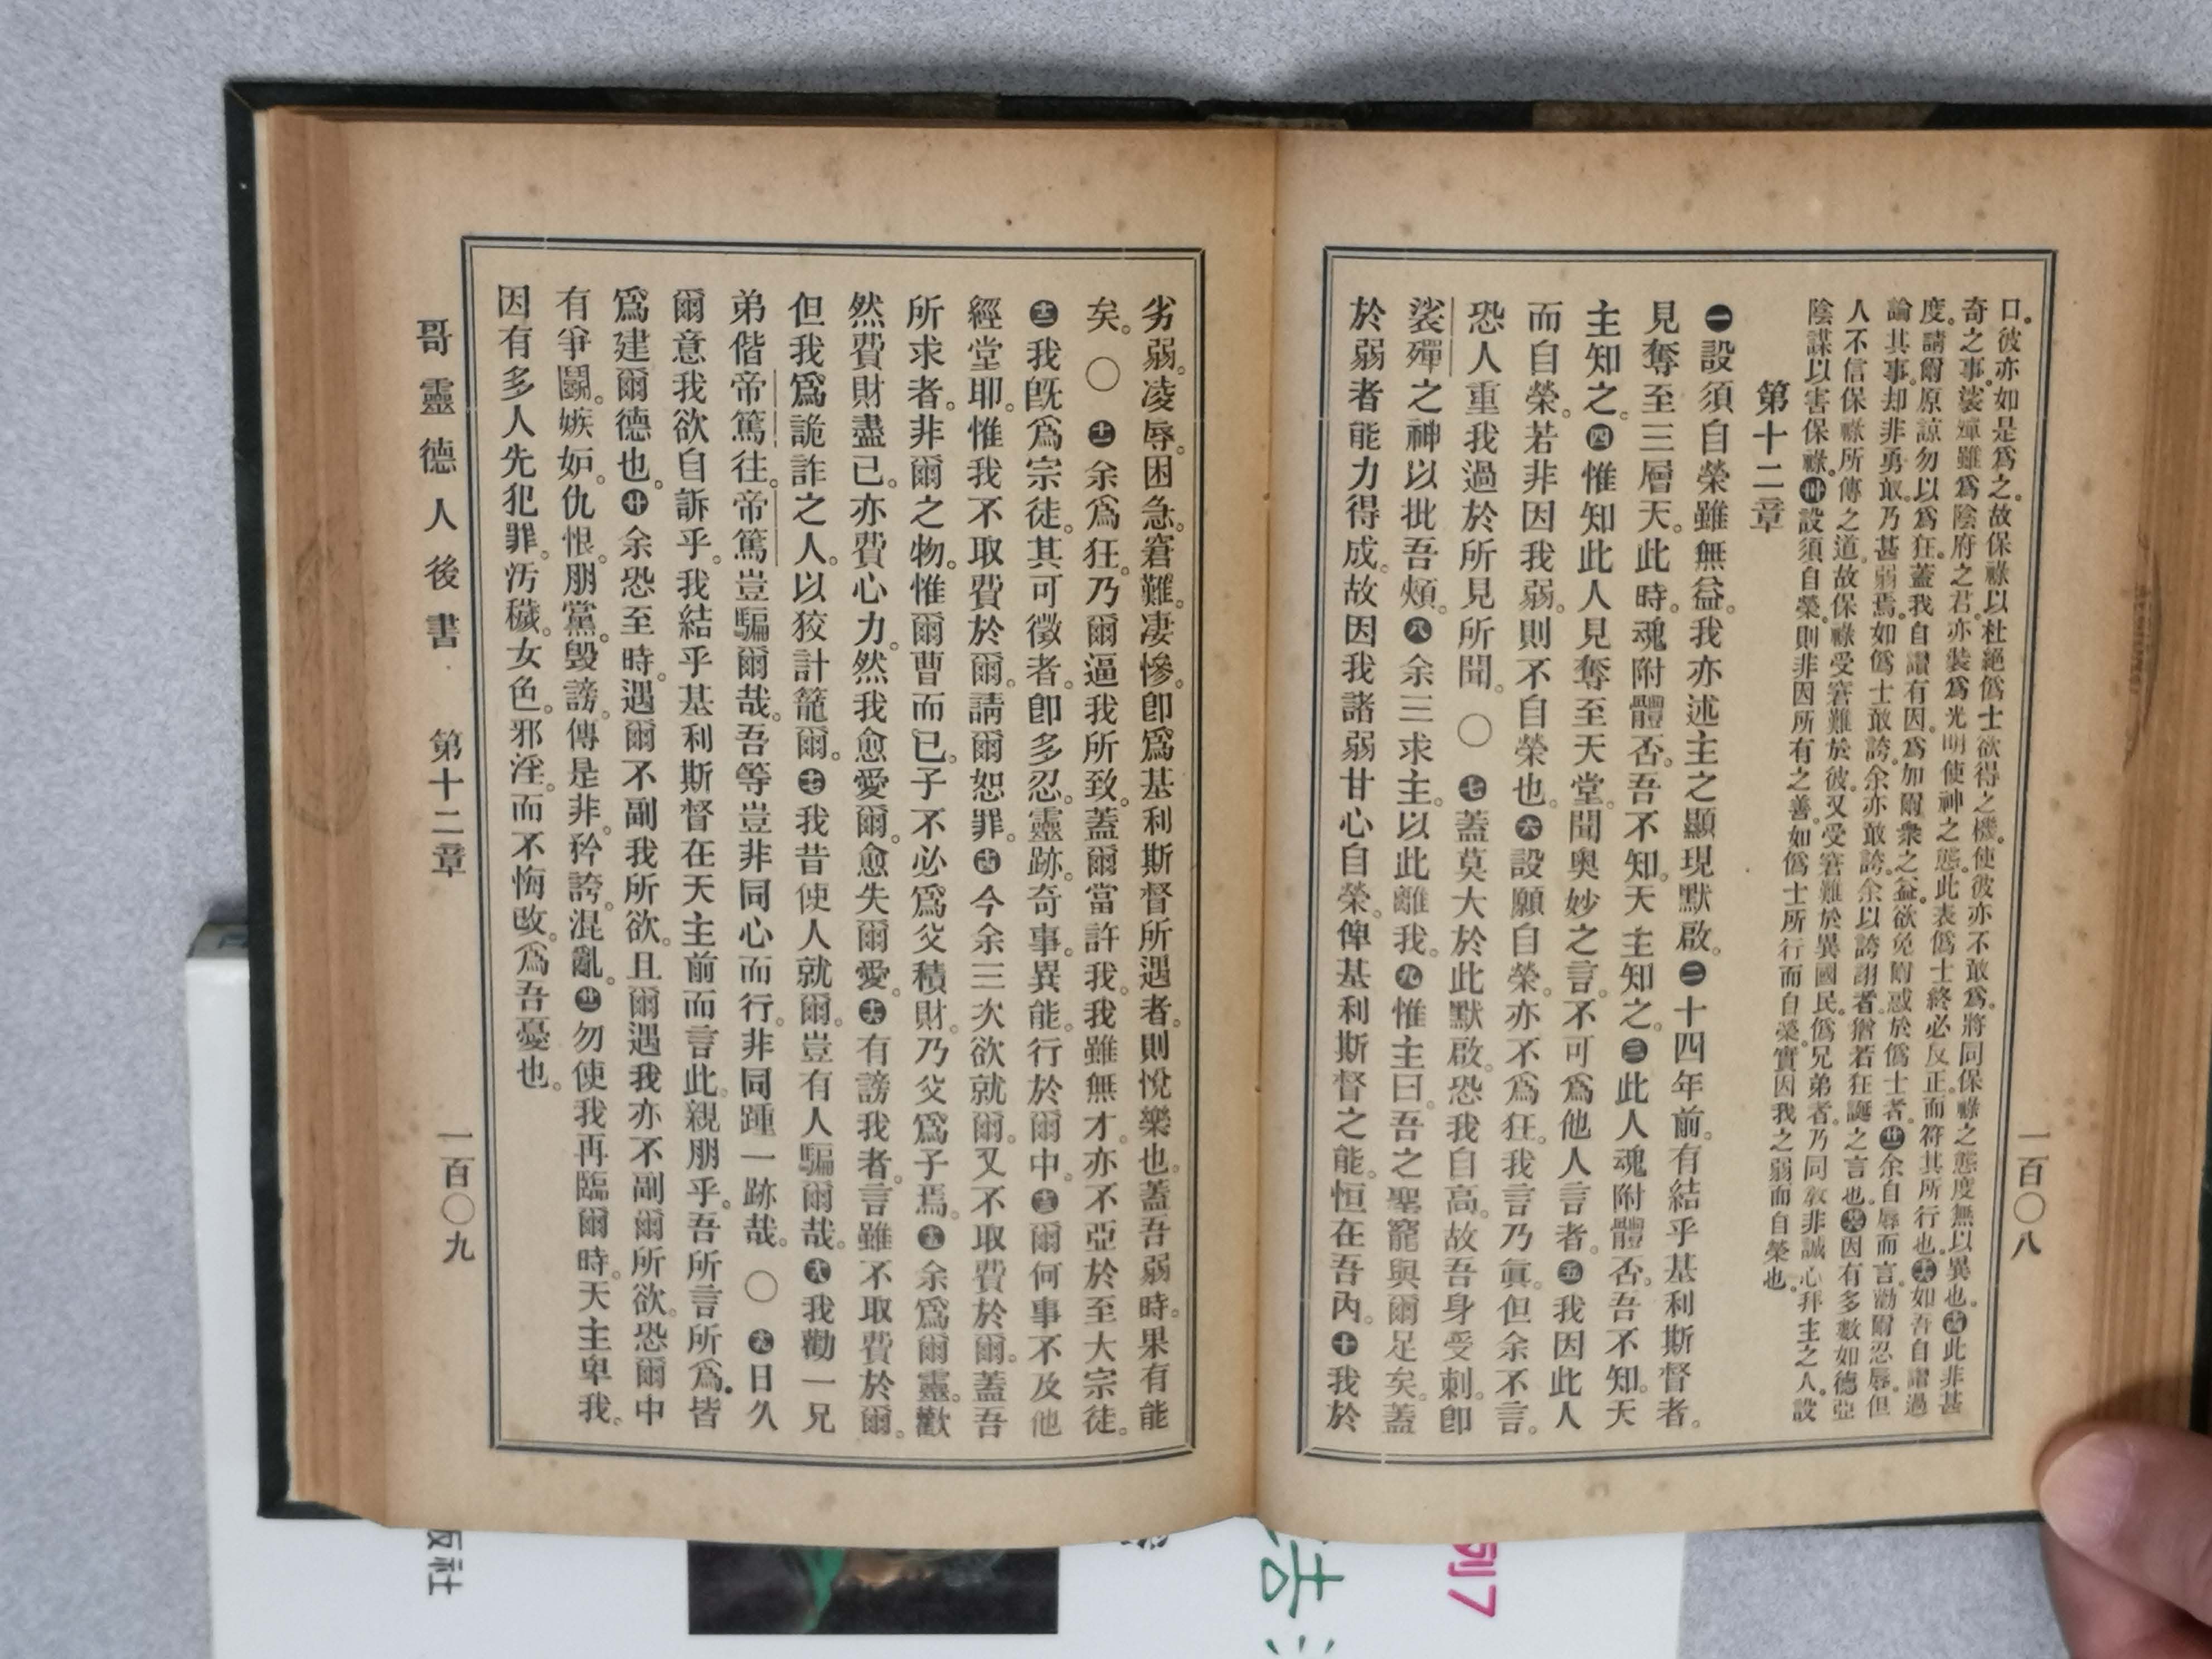 口。彼亦如是爲之。故保祿以杜絕僞士欲得之機。使彼亦不敢爲。將同保祿之態度無以異也。㊉此非甚
奇之事。裟殫雖爲陰府之君。亦裝爲光明使神之態。此表僞士終必反正。而符其所行也。㊉如吾自讚過
度。請爾原諒勿以爲狂。蓋我自讚有因。爲加爾衆之益。欲免爾惑於僞士者。㊉余自辱而言。勸爾忍辱。但
論其事。却非勇敢。乃甚弱焉。如僞士敢誇。余亦敢誇。余以誇詡者。猶若狂誕之言也。㊉因有多數如德亞
人不信保祿所傳之道。故保祿受窘難於彼。又受窘難於異國民。僞兄弟者。乃同敎非誠心拜主之人。設
陰謀以害保祿。㊉設須自榮。則非因所有之善。如僞士所行而自榮。實因我之弱而自榮也。
第十二章
㊀設須自榮雖無益。我亦述主之顯現默啟。㊁十四年前。有結乎基利斯督者。
見奪至三層天。此時。魂附體否。吾不知。天主知之。㊂此人魂附體否。吾不知。天
主知之。㊃惟知此人見奪至天堂。聞奧妙之言。不可爲他人言者。㊄我因此人
而自榮。若非因我弱。則不自榮也。㊅設願自榮。亦不爲狂。我言乃眞。但余不言。
恐人重我過於所見所聞。〇㊆蓋莫大於此默啟。恐我自高。故吾身受刺。卽
裟殫之神以批吾頰。㊇余三求主。以此離我。㊈惟主曰。吾之聖寵與爾足矣。蓋
於弱者能力得成。故因我諸弱甘心自榮。俾基利斯督之能。恒在吾內。㊉我於
一百〇八
劣弱。凌辱。困急。窘難。凄慘。卽爲基利斯督所遇者。則悅樂也。蓋吾弱時。果有能
矣。〇十一余爲狂。乃爾逼我所致。蓋爾當許我。我雖無才。亦不亞於至大宗徒。
十二我旣爲宗徒。其可徵者。卽多忍。靈跡。奇事。異能。行於爾中。十三爾何事不及他
經堂耶。惟我不取費於爾。請爾恕罪。十四今余三次欲就爾。又不取費於爾。蓋吾
所求者。非爾之物。惟爾曹而已。子不必爲父積財。乃父爲子焉。十五余爲爾靈。歡
然費財盡已。亦費心力。然我愈愛爾。愈失爾愛。十六有謗我者。言雖不取費於爾。
但我爲詭詐之人。以狡計籠爾。十七我昔使人就爾。豈有人騙爾哉。十八我勸一兄
弟偕帝篤往。帝篤豈騙爾哉。吾等豈非同心而行。非同踵一跡哉。〇十九日久
爾意我欲自訴乎。我結乎基利斯督在天主前而言此。親朋乎。吾所言所爲。皆
爲建爾德也。廿余恐至時。遇爾不副我所欲。且爾遇我亦不副爾所欲。恐爾中
有爭鬭。嫉妬。仇恨。朋黨。毁謗。傳是非。矜誇。混亂。廿一勿使我再臨爾時。天主卑我。
因有多人先犯罪。汚穢。女色。邪淫。而不悔改。爲吾憂也。
哥靈德人後書 第十二章 一百〇九
版社
列7